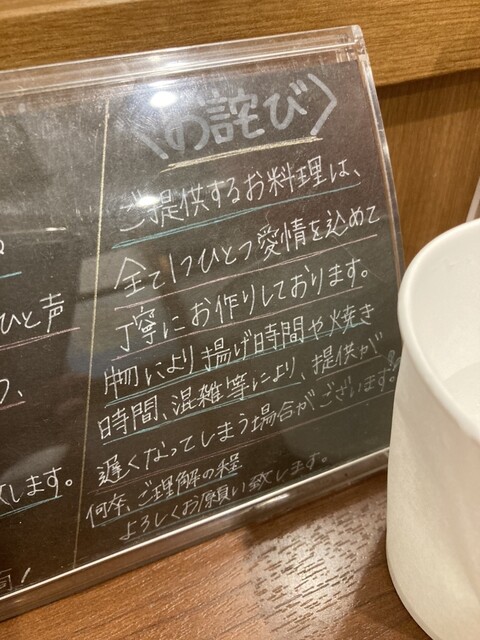 〈お詫び〉
ご提供するお料理は、
全て1つひとつ愛情を込めて
丁寧にお作りしております。
物により揚げ時間や焼き
時間、混雑等により、提供が
遅くなってしまう場合がございます。
何卒、ご理解の程
よろしくお願い致します。
ひと声
つ、
致します。